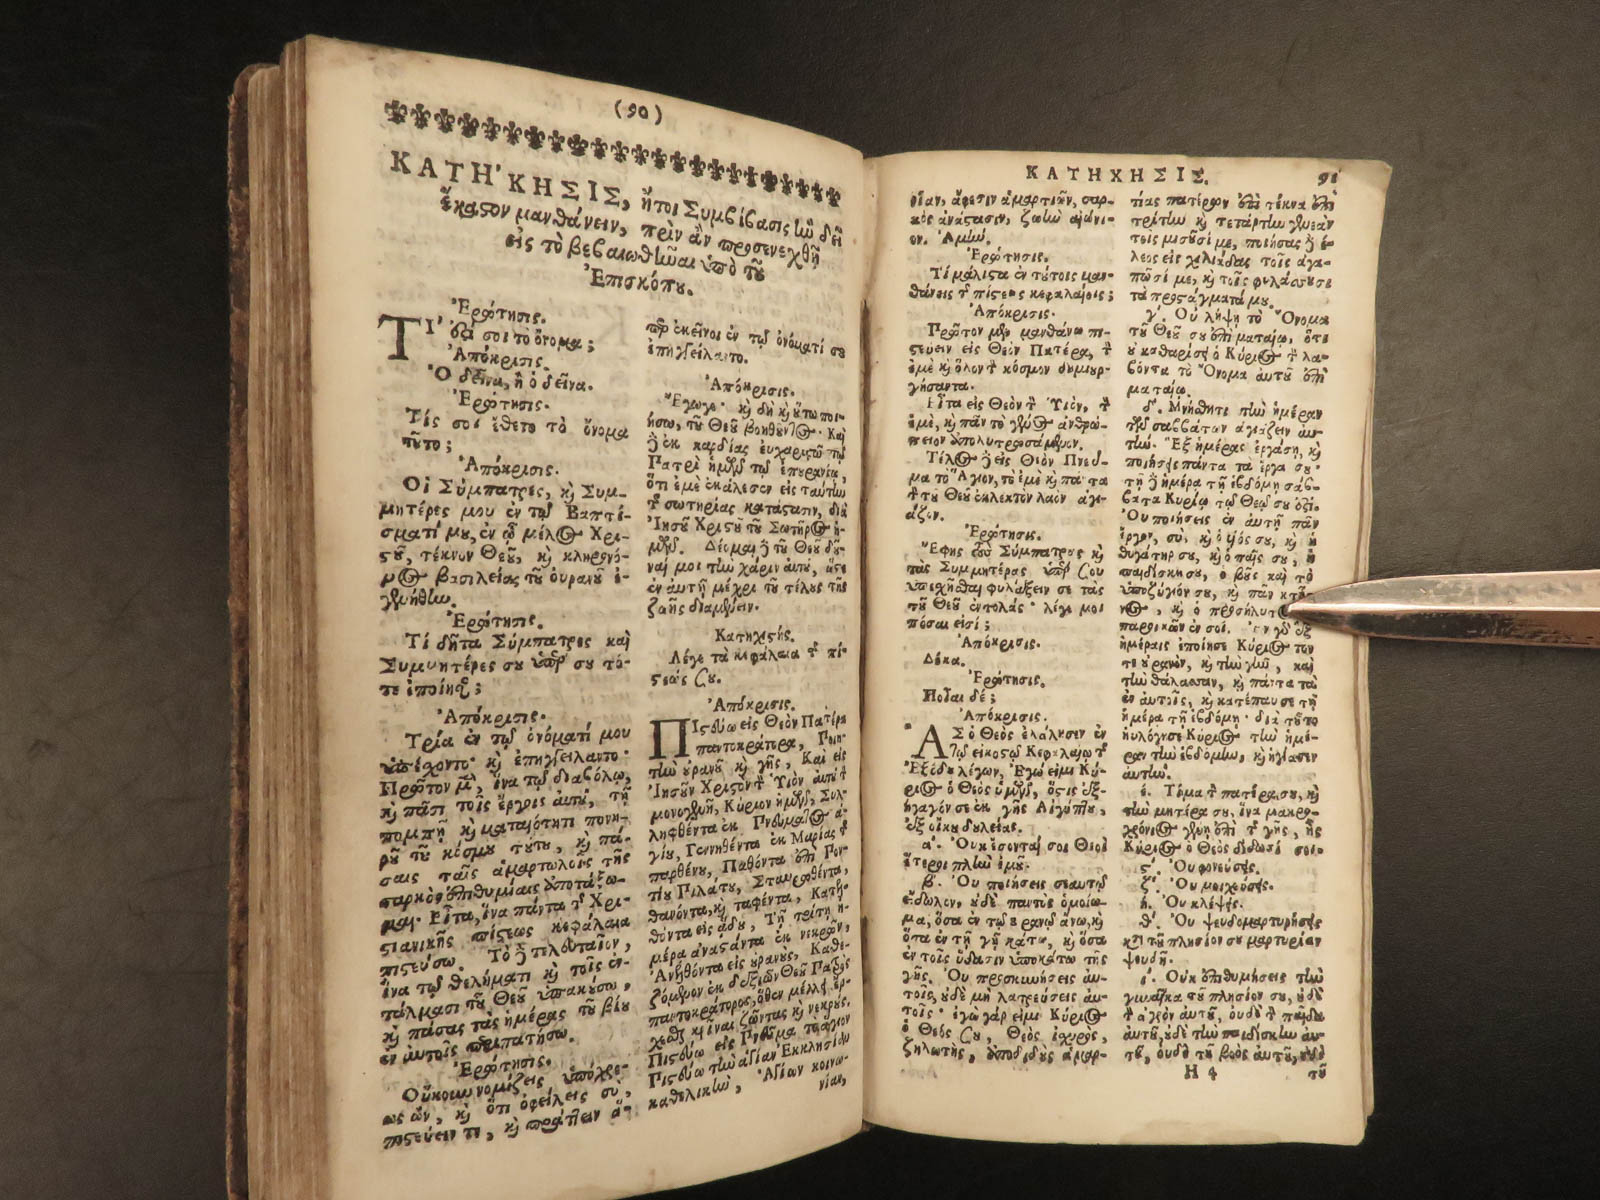 (90)
ΚΑΤΗ'ΚΗΣΙΣ, ἤτοι Συμβίβασις ἣν δεῖ
ἕκαστον μανθάνειν, πρὶν ἂν προσενεχθῇ
εἰς τὸ βεβαιωθῆναι ὑπὸ τοῦ
Ἐπισκόπου.
Ἐρώτησις.
ΤΙ' ἐστί σοι τὸ ὄνομα;
Ἀπόκρισις.
Ὁ δεῖνα, ἢ ὁ δεῖνα.
Ἐρώτησις.
Τίς σοι ἔθετο τὸ ὄνομα
τοῦτο;
Ἀπόκρισις.
Οἱ Σύμπατρες, καὶ Συμ-
μητέρες μου ἐν τῷ Βαπτί-
σματί μου, ἐν ᾧ μέλος Χρι-
στοῦ, τέκνον Θεοῦ, καὶ κληρονό-
μος βασιλείας τοῦ οὐρανοῦ ἐ-
γενήθην.
Ἐρώτησις.
Τί δῆτα Σύμπατρες καὶ
Συμμητέρες σου ὑπὲρ σου τό-
τε ἐποίησαν;
Ἀπόκρισις.
Τρία ἐν τῷ ὀνόματί μου
ὑπέσχοντο καὶ ἐπηγγείλαντο·
Πρῶτον μὲν, ἵνα τῷ διαβόλῳ,
καὶ πᾶσι τοῖς ἔργοις αὐτοῦ, τῇ
πομπῇ καὶ ματαιότητι πονη-
ροῦ τοῦ κόσμου τούτου, καὶ πά-
σαις ταῖς ἁμαρτωλοῖς τῆς
σαρκὸς ἐπιθυμίαις ἀποτάξω-
μαι· Εἶτα, ἵνα πάντα τὰ Χρι-
στιανικῆς πίστεως κεφάλαια
πιστεύσω. Τὸ δὲ τελευταῖον,
ἵνα τῷ θελήματι καὶ τοῖς ἐν-
τάλμασι τοῦ Θεοῦ ὑπακούσω,
καὶ πάσας τὰς ἡμέρας τοῦ βίου
ἐν αὐτοῖς περιπατήσω.
Ἐρώτησις.
Οὔκουν νομίζεις ὑπόχρε-
ως ὢν, καὶ ὅτι ὀφείλεις σὺ,
πιστεύειν τι, καὶ πράττειν ἅ-
περ ἐκεῖνοι ἐν τῷ ὀνόματί σου
ἐπηγγείλαντο.
Ἀπόκρισις.
Ἔγωγε· καὶ δὴ καὶ οὕτω ποι-
ήσω, τοῦ Θεοῦ βοηθοῦντος· Καὶ
δὲ ἐκ καρδίας εὐχαριστῶ τῷ
Πατρὶ ἡμῶν τῷ ἐπουρανίῳ,
ὅτι ἐμὲ ἐκάλεσεν εἰς ταύτην
τὴν σωτηρίας κατάστασιν, διὰ
Ἰησοῦ Χριστοῦ τοῦ Σωτῆρος ἡ-
μῶν. Δέομαι δὲ τοῦ Θεοῦ δοῦ-
ναί μοι τὴν χάριν αὐτοῦ, ὥστε
ἐν αὐτῇ μέχρι τοῦ τέλους τῆς
ζωῆς διαμένειν.
Κατηχιστής.
Λέγε τὰ κεφάλαια τῆς πί-
στεώς σου.
Ἀπόκρισις.
ΠΙστεύω εἰς Θεὸν Πατέρα
παντοκράτορα, Ποιη-
τὴν οὐρανοῦ καὶ γῆς, Καὶ εἰς
Ἰησοῦν Χριστὸν τὸν Υἱὸν αὐτοῦ τὸν
μονογενῆ, Κύριον ἡμῶν, Συλ-
ληφθέντα ἐκ Πνεύματος ἁ-
γίου, Γεννηθέντα ἐκ Μαρίας τῆς
παρθένου, Παθόντα ἐπὶ Πον-
τίου Πιλάτου, Σταυρωθέντα,
θανόντα, καὶ ταφέντα, Κατη-
θόντα εἰς ᾅδου, Τῇ τρίτῃ ἡ-
μέρᾳ ἀναστάντα ἐκ νεκρῶν,
Ἀνελθόντα εἰς οὐρανοὺς, Καθε-
ζόμενον ἐκ δεξιῶν Θεοῦ Πατρὸς
παντοκράτορος, ὅθεν μέλλει ἔρ-
χεσθαι κρῖναι ζῶντας καὶ νεκρούς.
Πιστεύω εἰς Πνεῦμα τὸ ἅγιον
Πιστεύω τὴν ἁγίαν Ἐκκλησίαν
καθολικὴν, Ἁγίων κοινω-
νίαν,
ΚΑΤΗΧΗΣΙΣ. 91
νίαν, ἄφεσιν ἁμαρτιῶν, σαρ-
κὸς ἀνάστασιν, ζωὴν αἰώνι-
ον. Ἀμήν.
Ἐρώτησις.
Τί μάλιστα ἐν τούτοις μαν-
θάνεις τῆς πίστεως κεφαλαίοις;
Ἀπόκρισις.
Πρῶτον μὲν μανθάνω πι-
στεύειν εἰς Θεὸν Πατέρα, τὸν
ἐμὲ καὶ ὅλον τὸν κόσμον δημιουρ-
γήσαντα.
Εἶτα εἰς Θεὸν τὸν Υἱὸν, τὸν
ἐμὲ, καὶ πᾶν τὸ γένος ἀνθρώ-
πειον ἀπολυτρωσάμενον.
Τέλος δὲ εἰς Θεὸν Πνεῦ-
μα τὸ Ἅγιον, τὸ ἐμὲ καὶ πάντα
τὸν τοῦ Θεοῦ ἐκλεκτὸν λαὸν ἁγι-
άζον.
Ἐρώτησις.
Ἔφης τοὺς Σύμπατρος καὶ
τὰς Συμμητέρας ὑπὲρ σου
ὑποσχῆσθαι φυλάξειν σε τὰς
τοῦ Θεοῦ ἐντολάς· λέγε μοι
πόσαι εἰσί;
Ἀπόκρισις.
Δέκα.
Ἐρώτησις.
Ποῖαι δέ;
Ἀπόκρισις.
ΑΣ ὁ Θεὸς ἐλάλησεν ἐν
τῷ εἰκοστῷ Κεφαλαίῳ τῆς
Ἐξόδου λέγων, Ἐγώ εἰμι Κύ-
ριος ὁ Θεὸς ὑμῶν, ὅστις ἐξ-
ήγαγόν σε ἐκ γῆς Αἰγύπτου,
ἐξ οἴκου δουλείας.
α΄. Οὐκ ἔσονταί σοι Θεοὶ
ἕτεροι πλὴν ἐμοῦ.
β. Οὐ ποιήσεις σεαυτῷ
εἴδωλον, οὐδὲ παντὸς ὁμοίω-
μα, ὅσα ἐν τῷ οὐρανῷ ἄνω, καὶ
ὅσα ἐν τῇ γῇ κάτω, καὶ ὅσα
ἐν τοῖς ὕδασιν ὑποκάτω τῆς
γῆς. Οὐ προσκυνήσεις αὐ-
τοῖς, οὐδὲ μὴ λατρεύσεις αὐ-
τοῖς· ἐγὼ γάρ εἰμι Κύριος
ὁ Θεός σου, Θεὸς ἰσχυρὸς,
ζηλωτὴς, ἀποδιδοὺς ἁμαρ-
τίας πατέρων ἐπὶ τέκνα ἐπὶ
τρίτην καὶ τετάρτην γενεὰν
τοῖς μισοῦσί με, ποιήσας δὲ ἔ-
λεος εἰς χιλιάδας τοῖς ἀγα-
πῶσί με, καὶ τοῖς φυλάσσουσι
τὰ προστάγματά μου.
γ΄. Οὐ λήψῃ τὸ Ὄνομα
τοῦ Θεοῦ σου ἐπὶ ματαίῳ, ὅτι
οὐ καθαρίσει ὁ Κύριος τὸν λα-
βόντα τὸ Ὄνομα αὐτοῦ ἐπὶ
ματαίῳ.
δ΄. Μνήσθητι τὴν ἡμέραν
τῶν σαββάτων ἁγιάζειν αὐ-
τήν. Ἓξ ἡμέρας ἐργάσῃ, καὶ
ποιήσεις πάντα τὰ ἔργα σου·
τῇ δὲ ἡμέρᾳ τῇ ἑβδόμῃ σάβ-
βατα Κυρίῳ τῷ Θεῷ σου ἐστί.
Οὐ ποιήσεις ἐν αὐτῇ πᾶν
ἔργον, σὺ, καὶ ὁ υἱός σου, καὶ ἡ
θυγάτηρ σου, καὶ ὁ παῖς σου, ἡ
παιδίσκη σου, ὁ βοῦς καὶ τὸ
ὑποζύγιόν σου, καὶ πᾶν κτῆ-
νος, καὶ ὁ προσήλυτος
παροικῶν ἐν σοί. Ἐν γὰρ ἓξ
ἡμέραις ἐποίησε Κύριος τὸν
τε οὐρανὸν, καὶ τὴν γῆν, καὶ
τὴν θάλασσαν, καὶ πάντα τὰ
ἐν αὐτοῖς, καὶ κατέπαυσε τῇ
ἡμέρᾳ τῇ ἑβδόμῃ· διὰ τοῦτο
ηὐλόγησε Κύριος τὴν ἡμέ-
ραν τὴν ἑβδόμην, καὶ ἡγίασεν
αὐτήν.
έ. Τίμα τὸν πατέρα σου, καὶ
τὴν μητέρα σου, ἵνα μακρο-
χρόνιος γένῃ ἐπὶ τῆς γῆς, ἧς
Κύριος ὁ Θεὸς δίδωσί σοι.
ϛ΄. Οὐ φονεύσεις.
ζ΄. Οὐ μοιχεύσεις.
ή. Οὐ κλέψεις.
θ΄. Οὐ ψευδομαρτυρήσεις
κατὰ τοῦ πλησίον σου μαρτυρίαν
ψευδῆ.
ί. Οὐκ ἐπιθυμήσεις τὴν
γυναῖκα τοῦ πλησίον σου, οὐδὲ
τὸν ἀγρὸν αὐτοῦ, οὐδὲ τὸν παῖδα
αὐτοῦ, οὐδὲ τὴν παιδίσκην αὐ-
τοῦ, οὐδὲ τοῦ βοὸς αὐτοῦ, οὐδὲ
Η 4 τοῦ